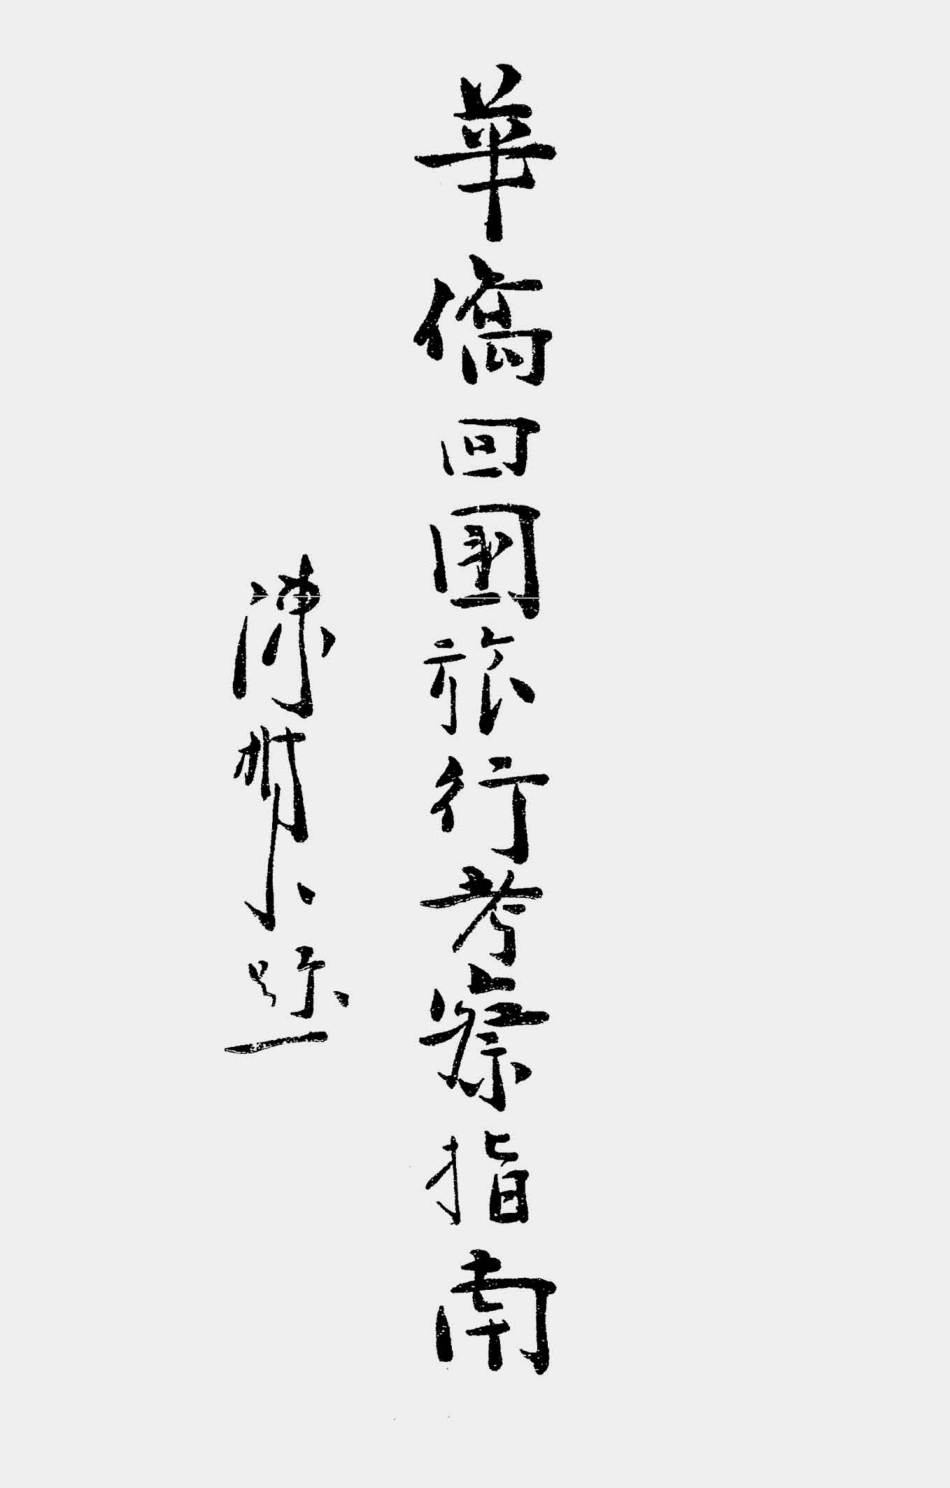 華僑回國旅行考察指南
陳樹人題